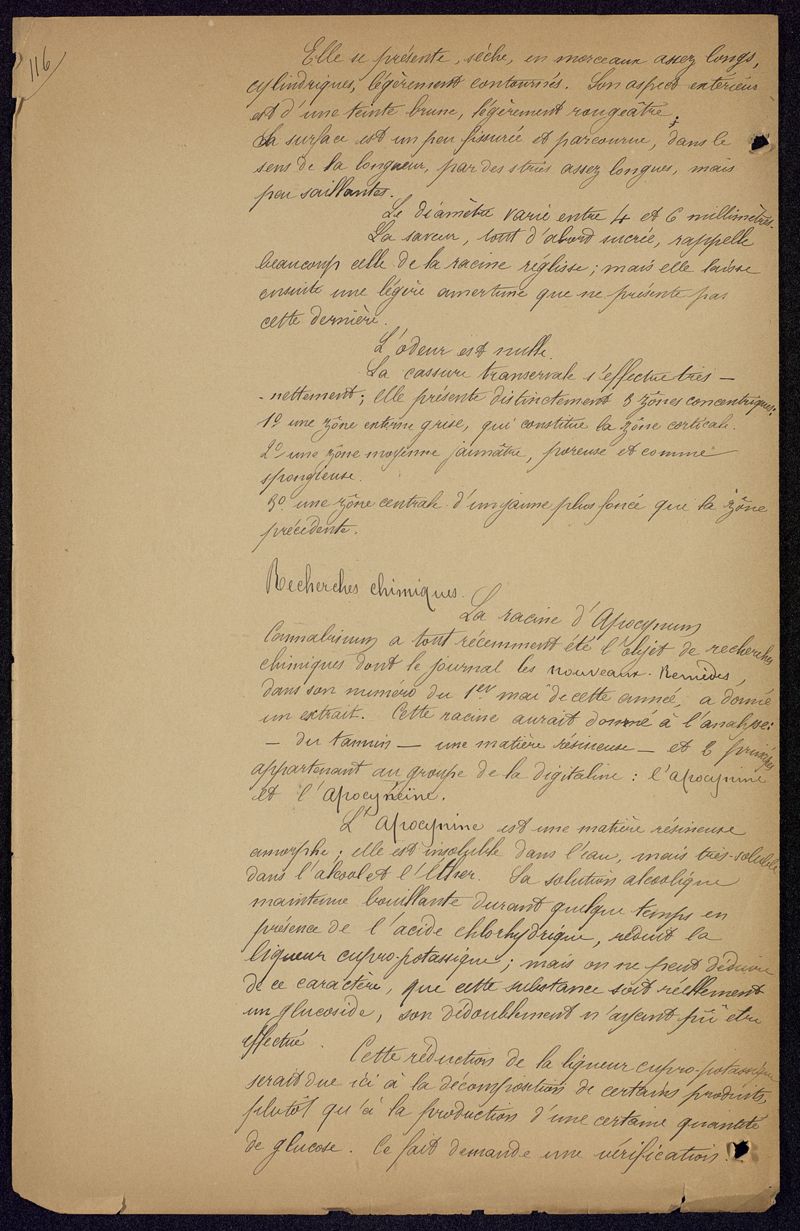 116
Elle se présente, sèche, en morceaux assez longs,
cylindriques, légèrement contournés. Son aspect extérieur
est d'une teinte brune, légèrement rougeâtre;
La surface est un peu fissurée et parcourue, dans le
sens de la longueur, par des stries assez longues, mais
peu saillantes.
Le diamètre varie entre 4 et 6 millimètres.
La saveur, tout d'abord sucrée, rappelle
beaucoup celle de la racine réglisse; mais elle laisse
ensuite une légère amertume que ne présente pas
cette dernière.
L'odeur est nulle.
La cassure transversale s'effectue très-
-nettement; elle présente distinctement 3 zônes concentriques:
1° une zône externe grise, qui constitue la zône corticale.
2° une zône moyenne jaunâtre, poreuse et comme
spongieuse.
3° une zône centrale d'un jaune plus foncé que la zône
précédente.
Recherches chimiques.
La racine d'Apocynum
Cannabinum a tout récemment été l'objet de recherches
chimiques dont le journal les nouveaux-Remèdes,
dans son numéro du 1er mai de cette année, a donné
un extrait. Cette racine aurait donné à l'analyse:
— du tannin — une matière résineuse — et 2 principes
appartenant au groupe de la digitaline: l'apocynine
et l'Apocynéïne.
L'Apocynine est une matière résineuse
amorphe; elle est insoluble dans l'eau, mais très-soluble
dans l'alcool et l'Ether. Sa solution alcoolique
maintenue bouillante durant quelque temps en
présence de l'acide chlorhydrique, réduit la
liqueur cupro-potassique; mais on ne peut déduire
de ce caractère, que cette substance soit réellement
un glucoside, son dédoublement n'ayant pû être
effectué.
Cette réduction de la liqueur cupro-potassique
serait due ici à la décomposition de certains produits,
plutôt qu'à la production d'une certaine quantité
de glucose. Ce fait demande une vérification.